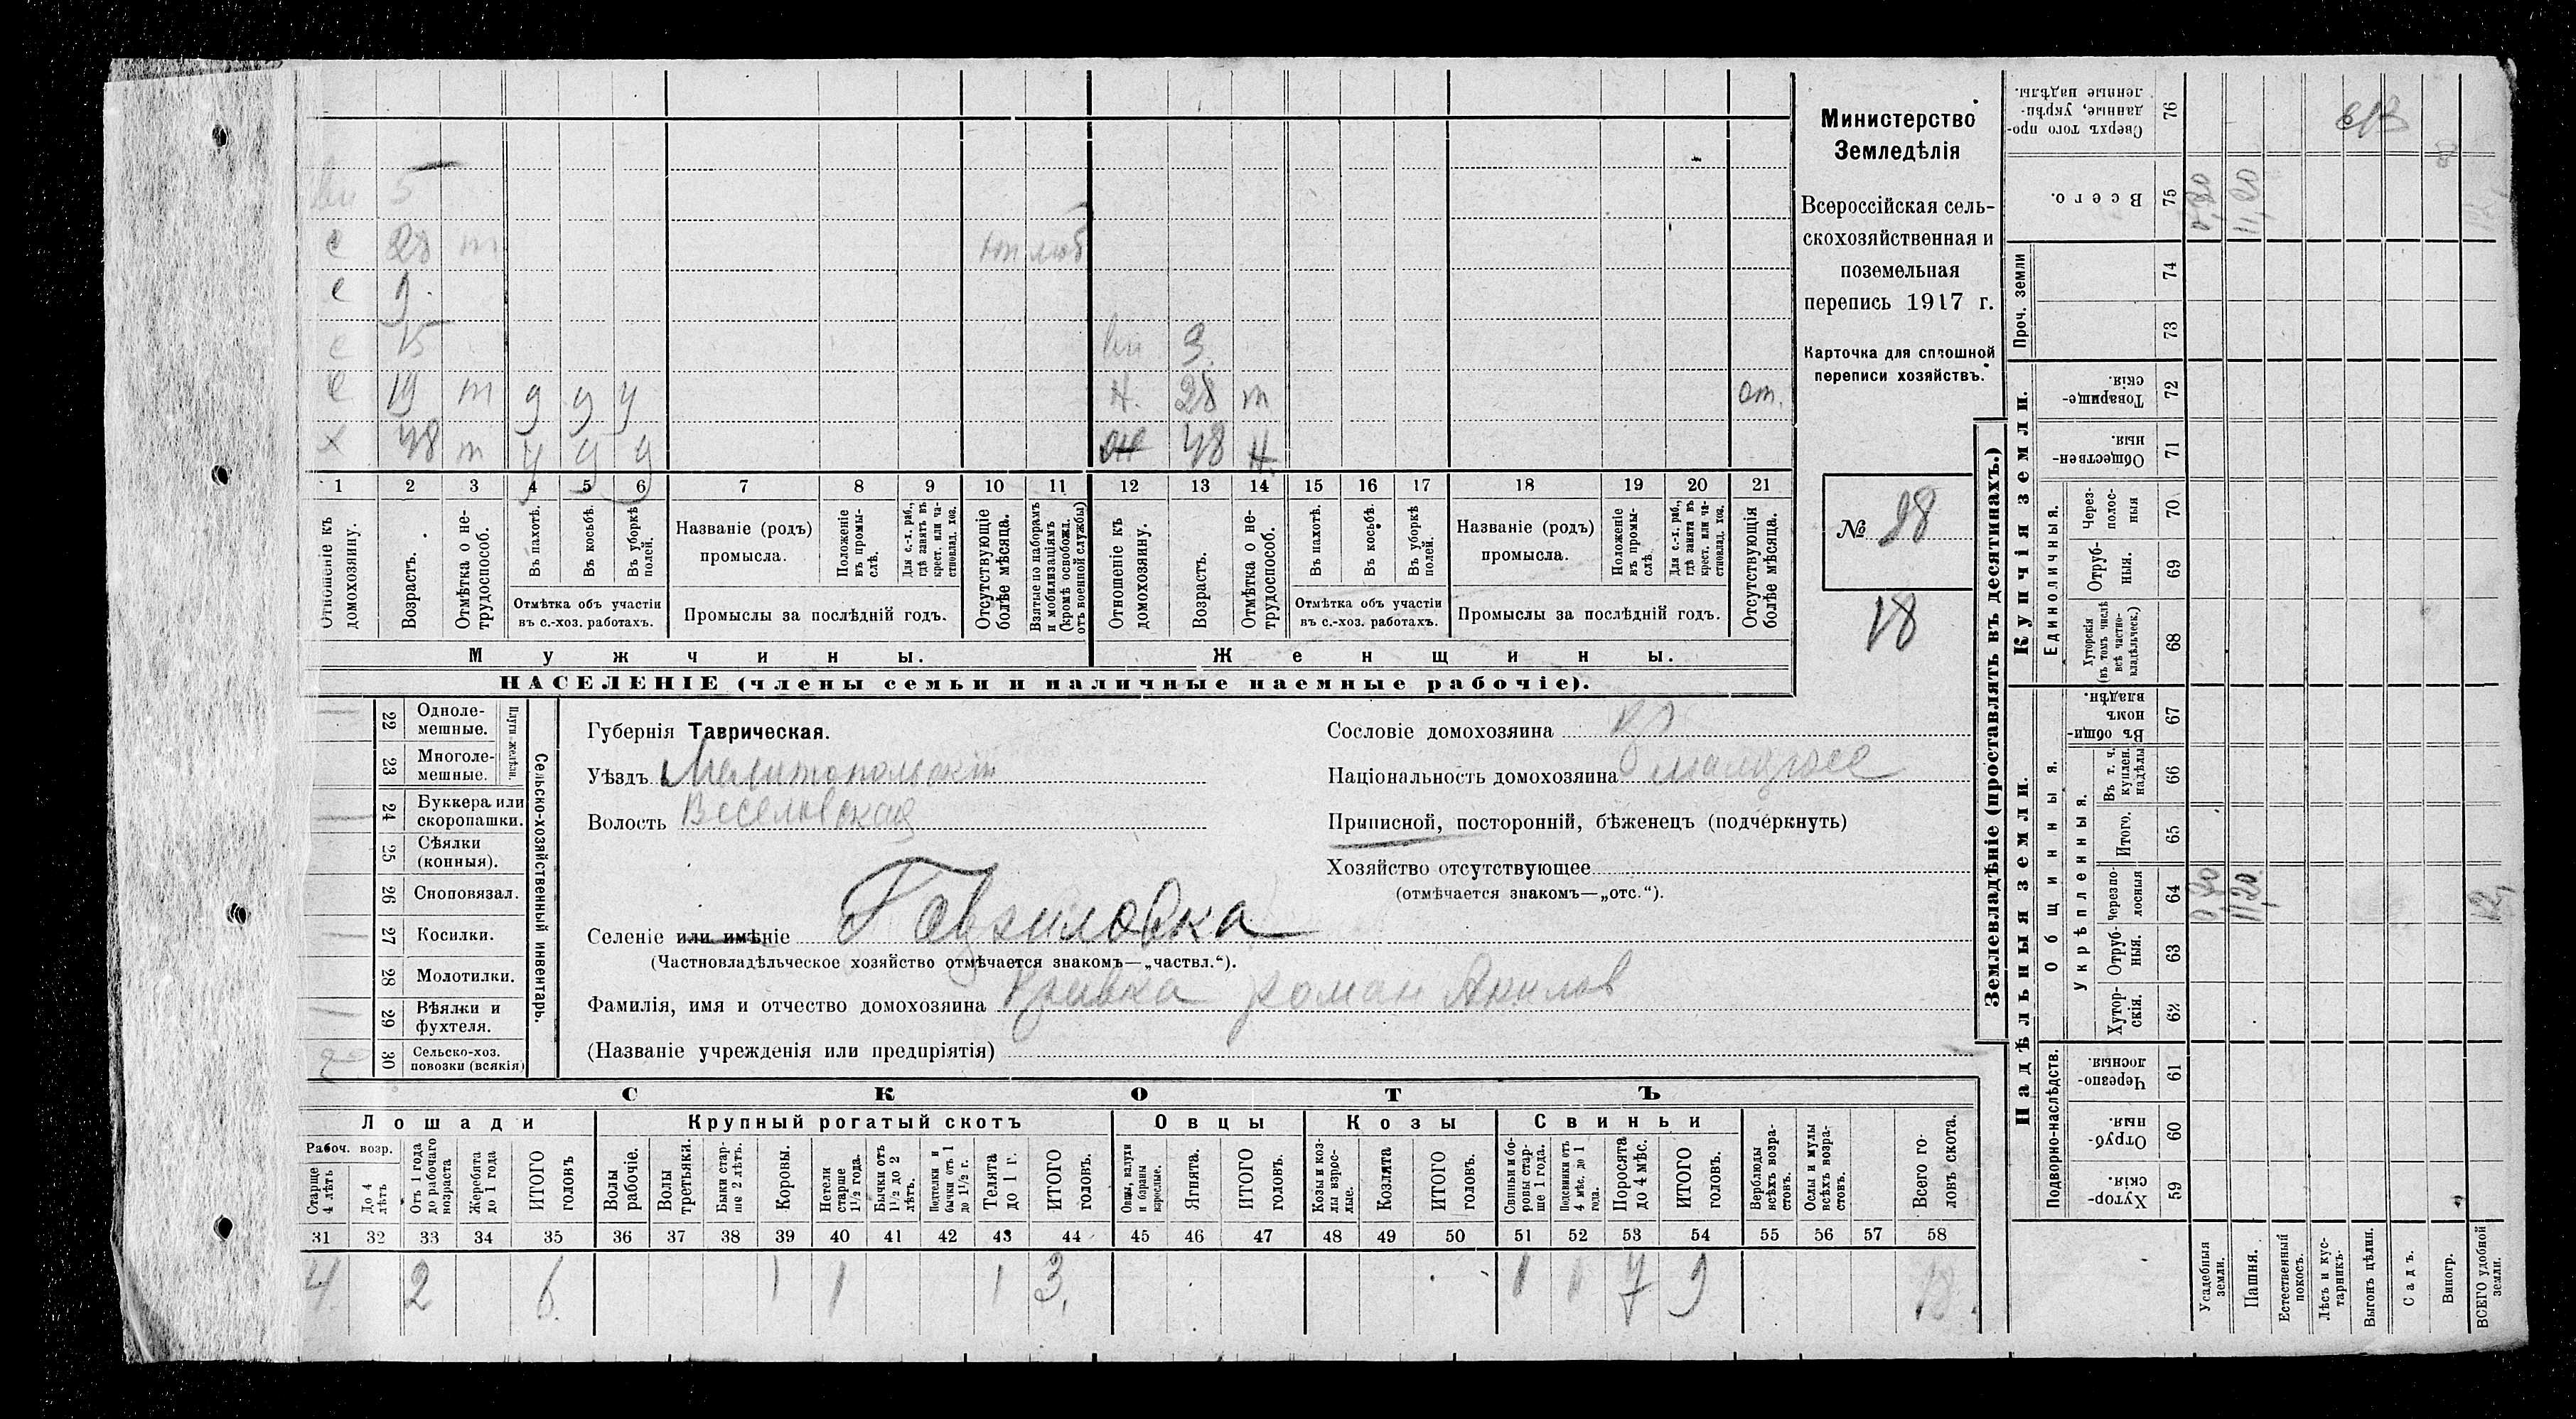 Министерство
Земледѣлія
Всероссійская сель-
скохозяйственная и
поземельная
перепись 1917 г.
Карточка для сплошной
переписи хозяйствъ.
№ 28
18
5
с 28 т
с 9
с 15 3
с 19 т у у у н. 28 т от.
х 48 т у у у ж 48 н.
1 2 3 4 5 6 7 8 9 10 11 12 13 14 15 16 17 18 19 20 21
Отношеніе къ домохозяину.
Возрастъ.
Отмѣтка о не-трудоспособ.
Въ пахотѣ.
Въ косьбѣ.
Въ уборкѣ полей.
Отмѣтка объ участіи
въ с.-хоз. работахъ.
Названіе (родъ)
промысла.
Положеніе въ промы-слѣ.
Для с.-х. раб., гдѣ занятъ въ крест. или ча-стновлад. хоз.
Промыслы за послѣдній годъ.
Отсутствующіе болѣе мѣсяца.
Взятые по наборамъ и мобилизаціямъ (кромѣ освобожд. отъ военной службы)
Отношеніе къ домохозяину.
Возрастъ.
Отмѣтка о не-трудоспособ.
Въ пахотѣ.
Въ косьбѣ.
Въ уборкѣ полей.
Отмѣтка объ участіи
въ с.-хоз. работахъ.
Названіе (родъ)
промысла.
Положеніе въ промы-слѣ.
Для с.-х. раб., гдѣ занята въ крест. или ча-стновлад. хоз.
Промыслы за послѣдній годъ.
Отсутствующія болѣе мѣсяца.
Мужчины. Женщины.
НАСЕЛЕНІЕ (члены семьи и наличные наемные рабочіе).
Сельско-хозяйственный инвентарь.
Плуги желѣзн.
22 Одноле-мешные.
23 Многоле-мешные.
24 Буккера или скоропашки.
25 Сѣялки (конныя).
26 Сноповязал.
27 Косилки.
28 Молотилки.
29 Вѣялки и фухтеля.
30 Сельско-хоз. повозки (всякія) 2
Губернія Таврическая.
Уѣздъ Мелитопольскій
Волость Веселовская
Селеніе или имѣніе Гавриловка
(Частновладѣльческое хозяйство отмѣчается знакомъ—„частвл.“).
Фамилія, имя и отчество домохозяина Кривка Роман Акилов
(Названіе учрежденія или предпріятія)
Сословіе домохозяина кр
Національность домохозяина
Приписной, посторонній, бѣженецъ (подчеркнуть)
Хозяйство отсутствующее
(отмѣчается знакомъ—„отс.“).
СКОТЪ
Лошади Крупный рогатый скотъ Овцы Козы Свиньи
Рабоч. возр.
Старше 4 лѣтъ
До 4 лѣтъ
Отъ 1 года до рабочаго возраста
Жеребята до 1 года
ИТОГО головъ
Волы рабочіе.
Волы третьяки.
Быки стар-ше 2 лѣтъ.
Коровы.
Нетели старше 1½ года.
Бычки отъ 1½ до 2 лѣтъ.
Подтелки и бычки отъ 1 до 1½ г.
Телята до 1 г.
ИТОГО головъ.
Овцы, валухи и бараны взрослые.
Ягнята.
ИТОГО головъ.
Козы и коз-лы взрос-лые.
Козлята
ИТОГО головъ.
Свиньи и бо-ровы стар-ше 1 года.
Подсвинки отъ 4 мѣс. до 1 года.
Поросята до 4 мѣс.
ИТОГО головъ.
Верблюды всѣхъ возра-стовъ.
Ослы и мулы всѣхъ возра-стовъ.
Всего го-ловъ скота.
31 32 33 34 35 36 37 38 39 40 41 42 43 44 45 46 47 48 49 50 51 52 53 54 55 56 57 58
4 2 6 1 1 1 3 1 1 7 9 18
Землевладѣніе (проставлять въ десятинахъ.)
Надѣльныя земли. Купчія земли.
Подворно-наслѣдств.
Общинныя.
Укрѣпленныя.
Единоличныя.
Проч. земли
59 Хутор-скія.
60 Отруб-ныя.
61 Черезпо-лосныя
62 Хутор-скія.
63 Отруб-ныя.
64 Черезпо-лосныя 0,80 11,20 12,
65 Итого.
66 Въ т. ч. куплен. надѣлы
67 Въ общин-номъ владѣн.
68 Хуторскія (въ томъ числѣ всѣ частно-владѣльческ.)
69 Отруб-ныя.
70 Через-полос-ныя
71 Обществен-ныя.
72 Товарище-скія.
73
74
75 Всего. 0,80 11,20
76 Сверхъ того про-данные, укрѣп-ленные надѣлы.
Усадебныя земли.
Пашня.
Естественный покосъ.
Лѣсъ и кус-тарникъ.
Выгонъ цѣлин.
Садъ.
Виногр.
ВСЕГО удобной земли.